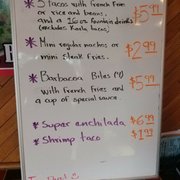 * 3 Tacos with French Fries
or rice and beans,
and a 16oz fountain drink
(excludes Fiesta tacos) $5.99
* Mini regular nachos or
mini steak fries. $2.99
* Barbacoa Bites (4)
with French Fries and
a cup of special sauce. $5.99
* Super enchilada $6.99
* Shrimp taco $1.99